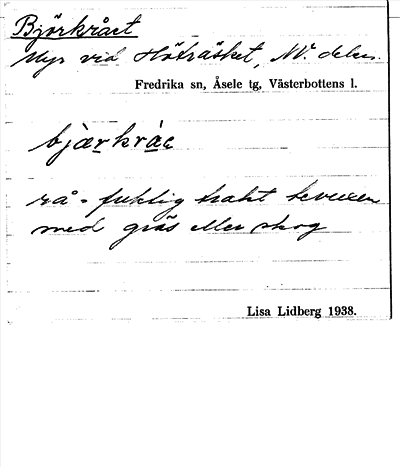 Björkrået
Myr vid Höträsket, NV. delen.
Fredrika sn, Åsele tg, Västerbottens l.
bjærkràe
rå = fuktig trakt bevuxen
med gräs eller skog
Lisa Lidberg 1938.